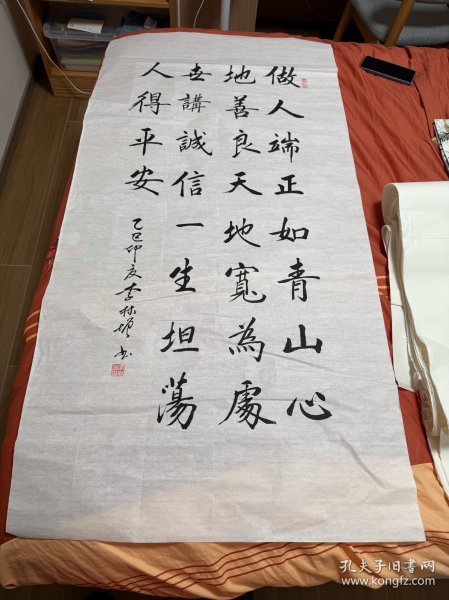 做人端正如青山心
地善良天地寬為處
世講誠信一生坦蕩
人得平安
乙巳仲夏李林书
孔夫子旧书网
www.kongfz.com